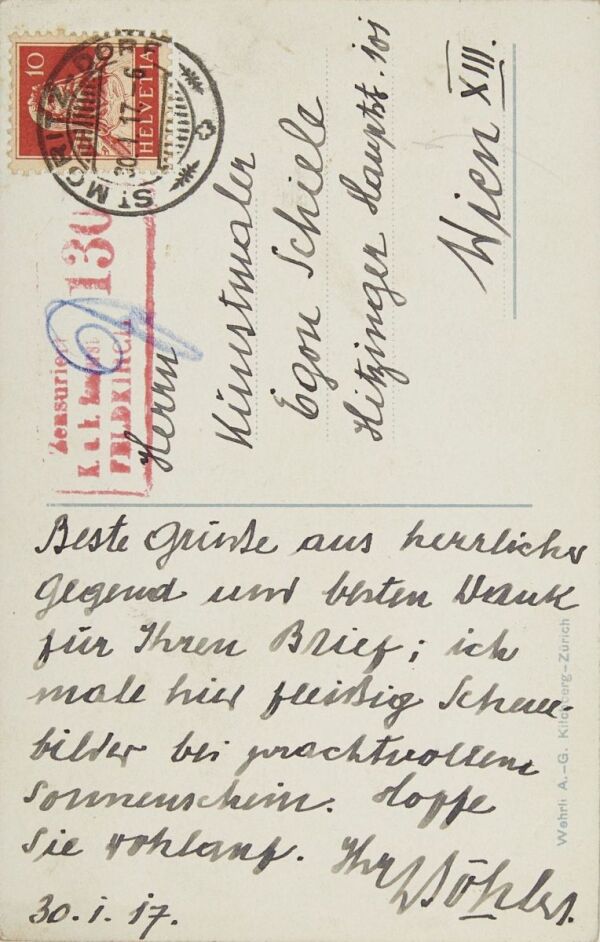 10
HELVETIA
ST. MORITZ-DORF
30.I.17.-6
130
Zensuriert
K. u. k.
FELDKIRCH
Herrn
Kunstmaler
Egon Schiele
Hitzinger Hauptst. 101
Wien XIII.
Beste Grüsse aus herrlicher
Gegend und besten Dank
für Ihren Brief; ich
male hier fleißig Schnee-
bilder bei prachtvollem
Sonnenschein. Hoffe
Sie wohlauf. Ihr Böhler.
30.I.17.
Wehrli A.-G. Kilchberg-Zürich